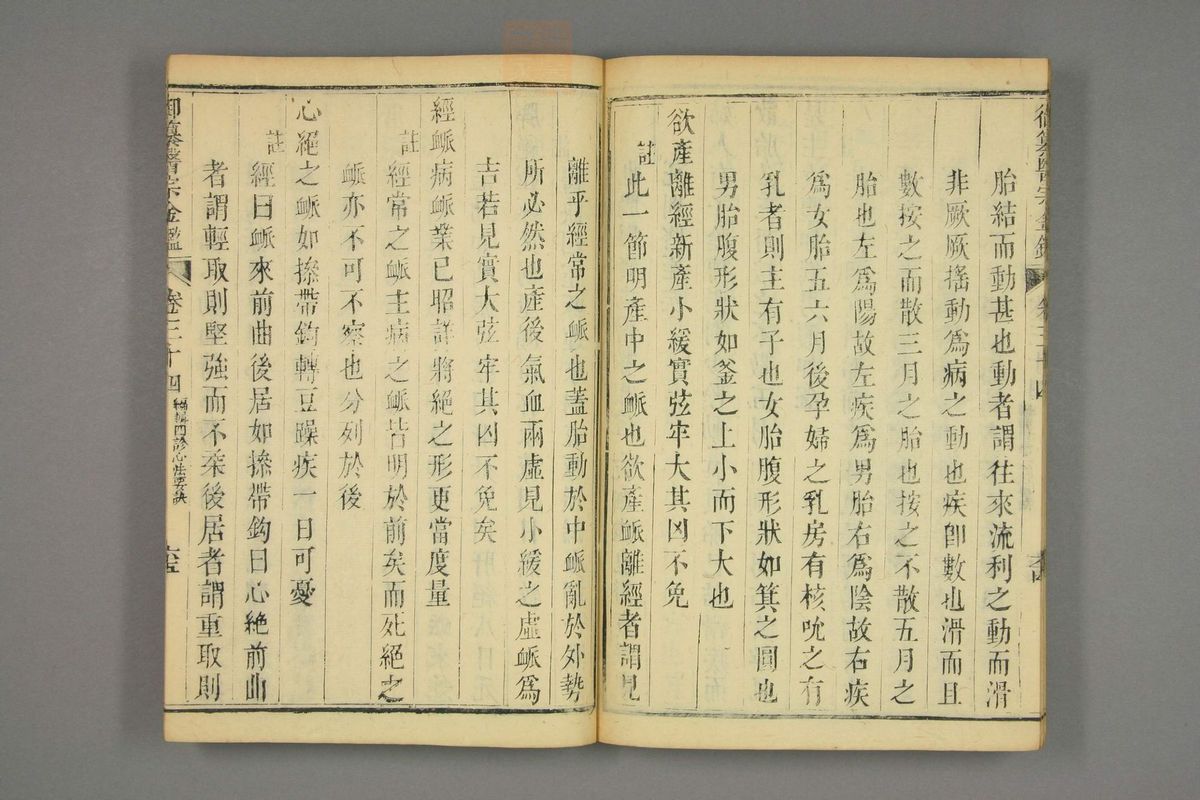 胎結而動甚也動者謂往來流利之動而滑
非厥厥搖動為病之動也疾即數也滑而且
數按之而散三月之胎也按之不散五月之
胎也左為陽故左疾為男胎右為陰故右疾
為女胎五六月後孕婦之乳房有核吮之有
乳者則主有子也女胎腹形狀如箕之圓也
男胎腹形狀如釜之上小而下大也
欲產離經新產小緩實弦牢大其凶不免
註此一節明產中之脈也欲產脈離經者謂見
離乎經常之脈也蓋胎動於中脈亂於外勢
所必然也產後氣血兩虛見小緩之虛脈為
吉若見實大弦牢其凶不免矣
經脈病脈業已昭詳將絕之形更當度量
註經常之脈主病之脈皆明於前矣而死絕之
脈亦不可不察也分列於後
心絕之脈如操帶鉤轉豆躁疾一日可憂
註經曰脈來前曲後居如操帶鉤曰心絶前曲
者謂輕取則堅強而不柔後居者謂重取則
御纂醫宗金鑑
卷三十四
編輯四診心法要訣